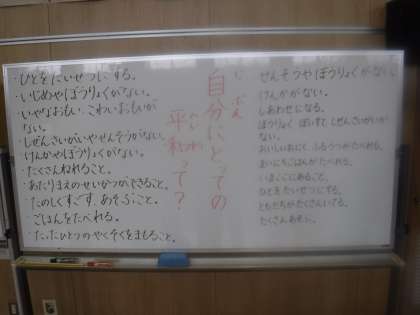 ・ひとをたいせつにする。
・いじめやぼうりょくがない。
・いやなおもい、こわいおもいが
ない。
・しぜんさいがいやせんそうがない。
けんかやぼうりょくがない。
・たくさんねれること。
・あたりまえのせいかつができること。
・たのしくすごす、あそぶこと。
・ごはんをたべれる。
・たったひとつのやくそくをまもること。
自分にとっての
平和って？
せんそうやぼうりょくがない
けんかがない。
しあわせになる。
ぼうりょく しぜんさいがい
おいしいおにく、ふるうつがたべれる。
まいにちごはんがたべれる。
いまここにあること。
ひとをたいせつにする。
ともだちがたくさんいてる。
たくさんあそぶ。